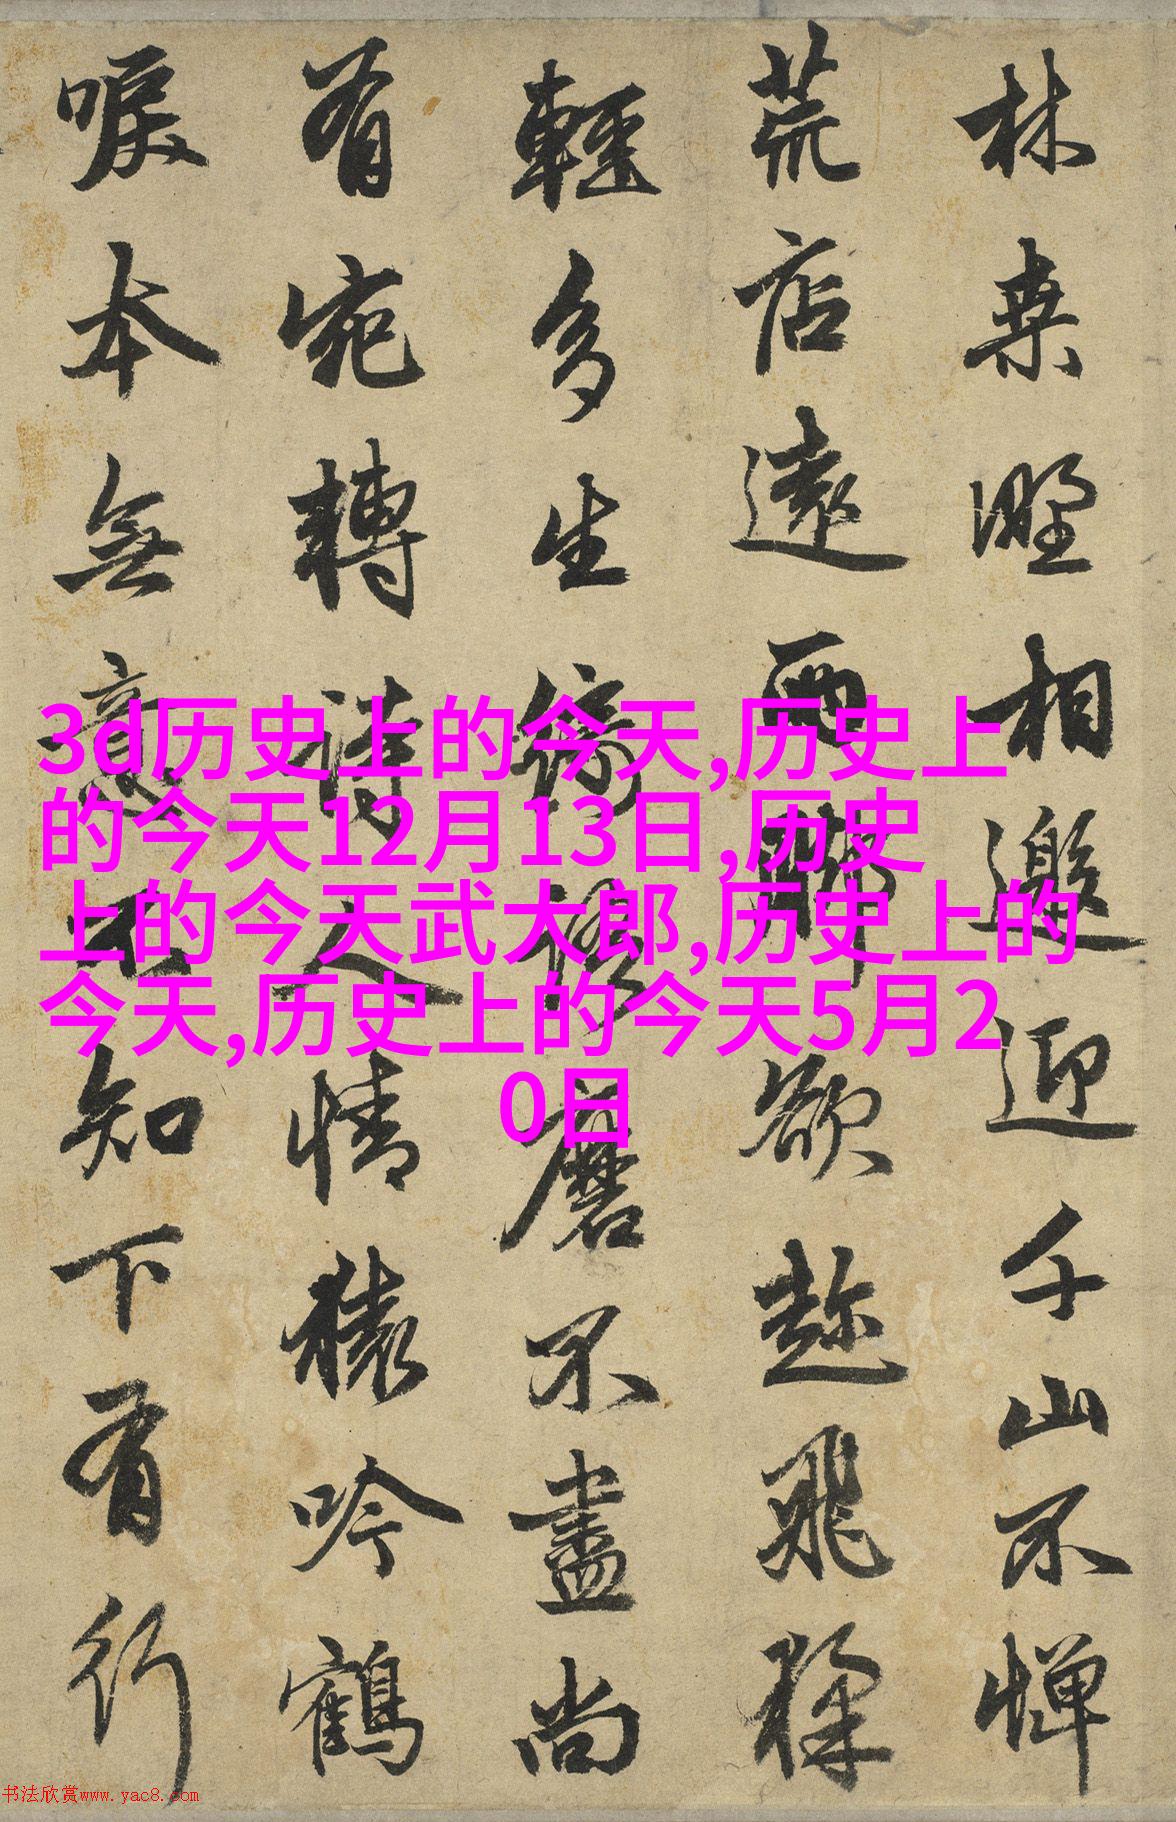 林桒野相邀迎千山不惮
荒店遠兩脚欲趂飛猱
輕多生綺語磨不盡尚
有宛轉詩人情猿吟鶴
唳本無意不知下有行
3d历史上的今天,历史上
的今天12月13日,历史
上的今天武大郎,历史上的
今天,历史上的今天5月2
0日
书法欣赏www.yac8.com